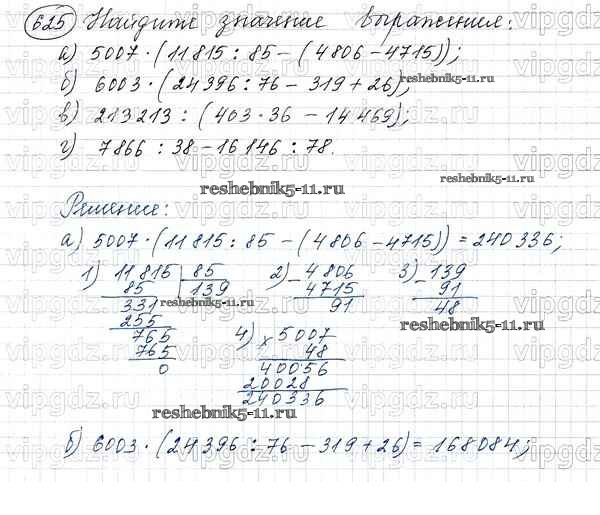 625 Найдите значение выражения:
а) 5007 · (11815 : 85 − (4806 − 4715));
б) 6003 · (24396 : 76 − 319 + 26);
reshebnik5-11.ru
в) 213213 : (403 · 36 − 14469);
г) 7866 : 38 − 16146 : 78.
reshebnik5-11.ru
reshebnik5-11.ru
Решение:
а) 5007 · (11815 : 85 − (4806 − 4715)) = 240336;
1) 11815 | 85 2) − 4806 3) − 139
85 139 4715 91
331 reshebnik5-11.ru 91 48
255
765 4) × 5007 reshebnik5-11.ru
765 48
0 40056
20028
240336
reshebnik5-11.ru
б) 6003 · (24396 : 76 − 319 + 26) = 168084;
vipgdz.ru